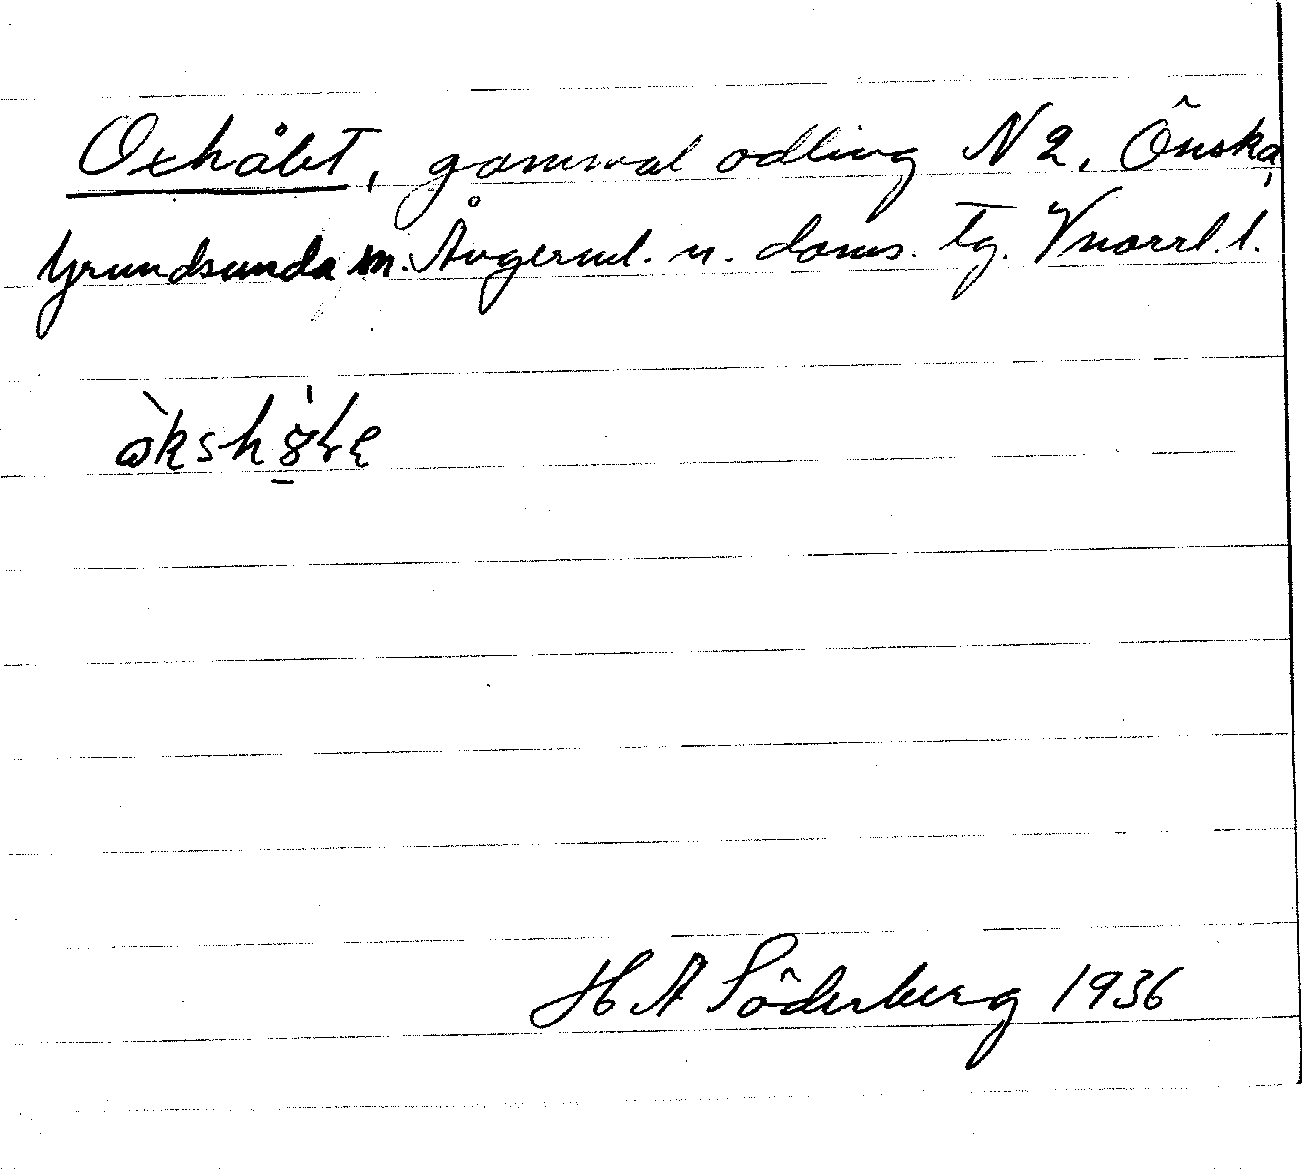 Oxhålet, gammal odling N 2, Önska,
Grundsunda sn. Ångerml. n. doms. Tg. Vnorrl. l.
H A Söderberg 1936